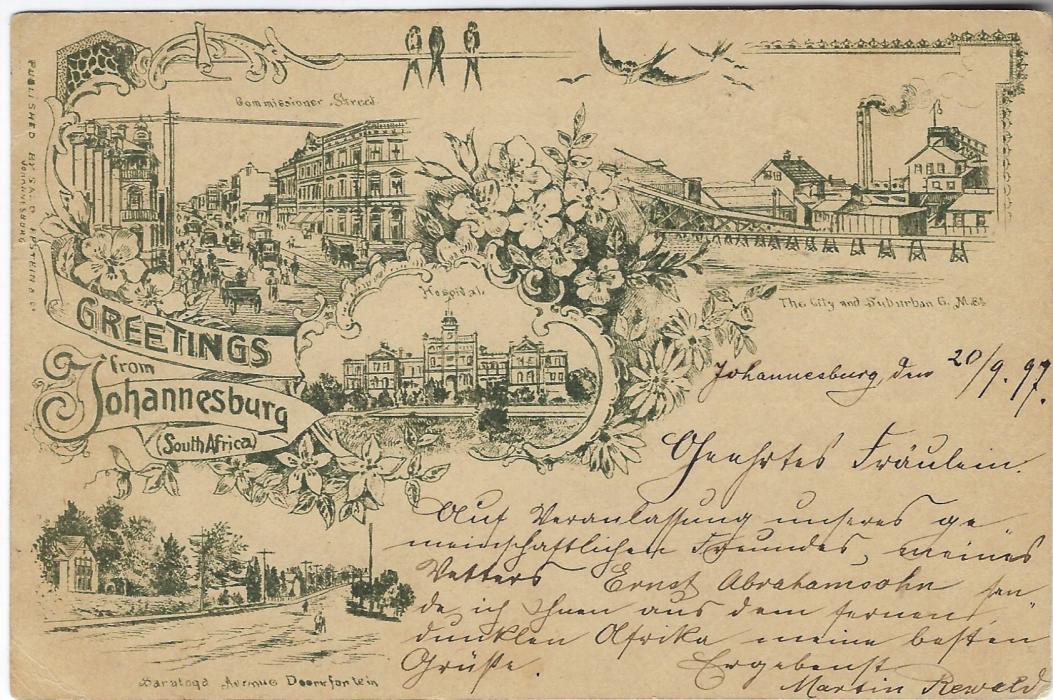 PUBLISHED BY SALO EPSTEIN & Co
JOHANNESBURG
Commissioner Street.
Hospital.
The City and Suburban G. M. Est
GREETINGS
from
Johannesburg
(South Africa)
Saratoga Avenue Doornfontein
Johannesburg, den 20/9. 97.
Geehrtes Fräulein.
Auf Veranlassung unseres ge
meinschaftlichen Freundes, meines
Vetters Ernst Abrahamsohn sen
de ich Ihnen aus dem fernen,
dunklen Afrika meine besten
Grüße. Ergebenst
Martin Rewald